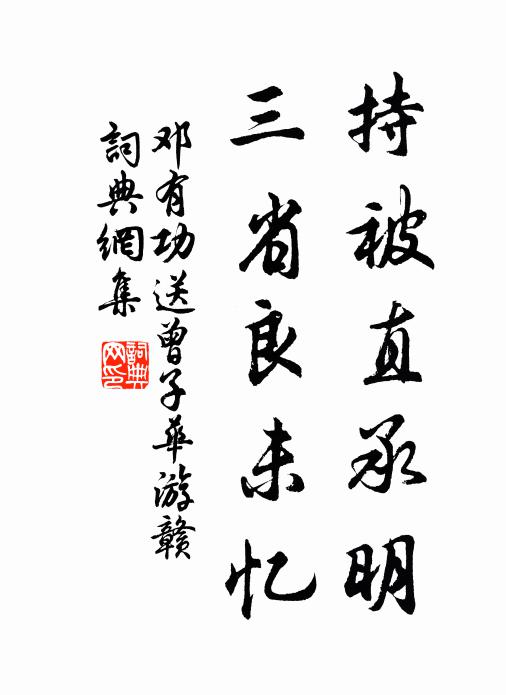 持被直承明
三省良未忆
邓有功送曾子华游赣
詞典網集
詞典网印